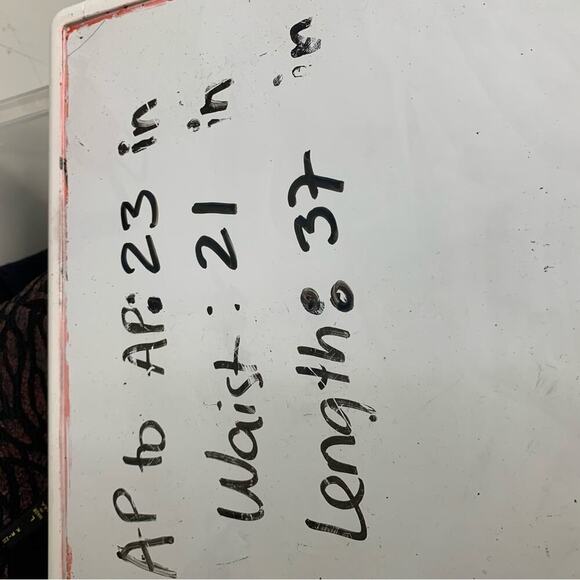 AP to AP: 23 in
Waist: 21 in
Length: 37 in